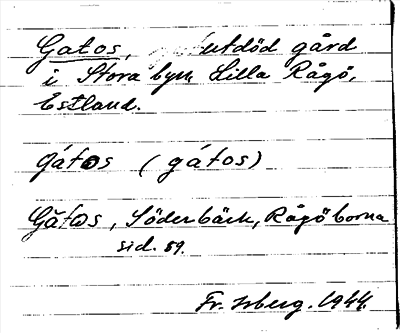 Gatos, utdöd gård
i Stora byn Lilla Rågö,
Estland.
gátos (gátos)
Gătos, Söderbäck, Rågöborna
sid. 59.
Fr. Isberg. 1944.